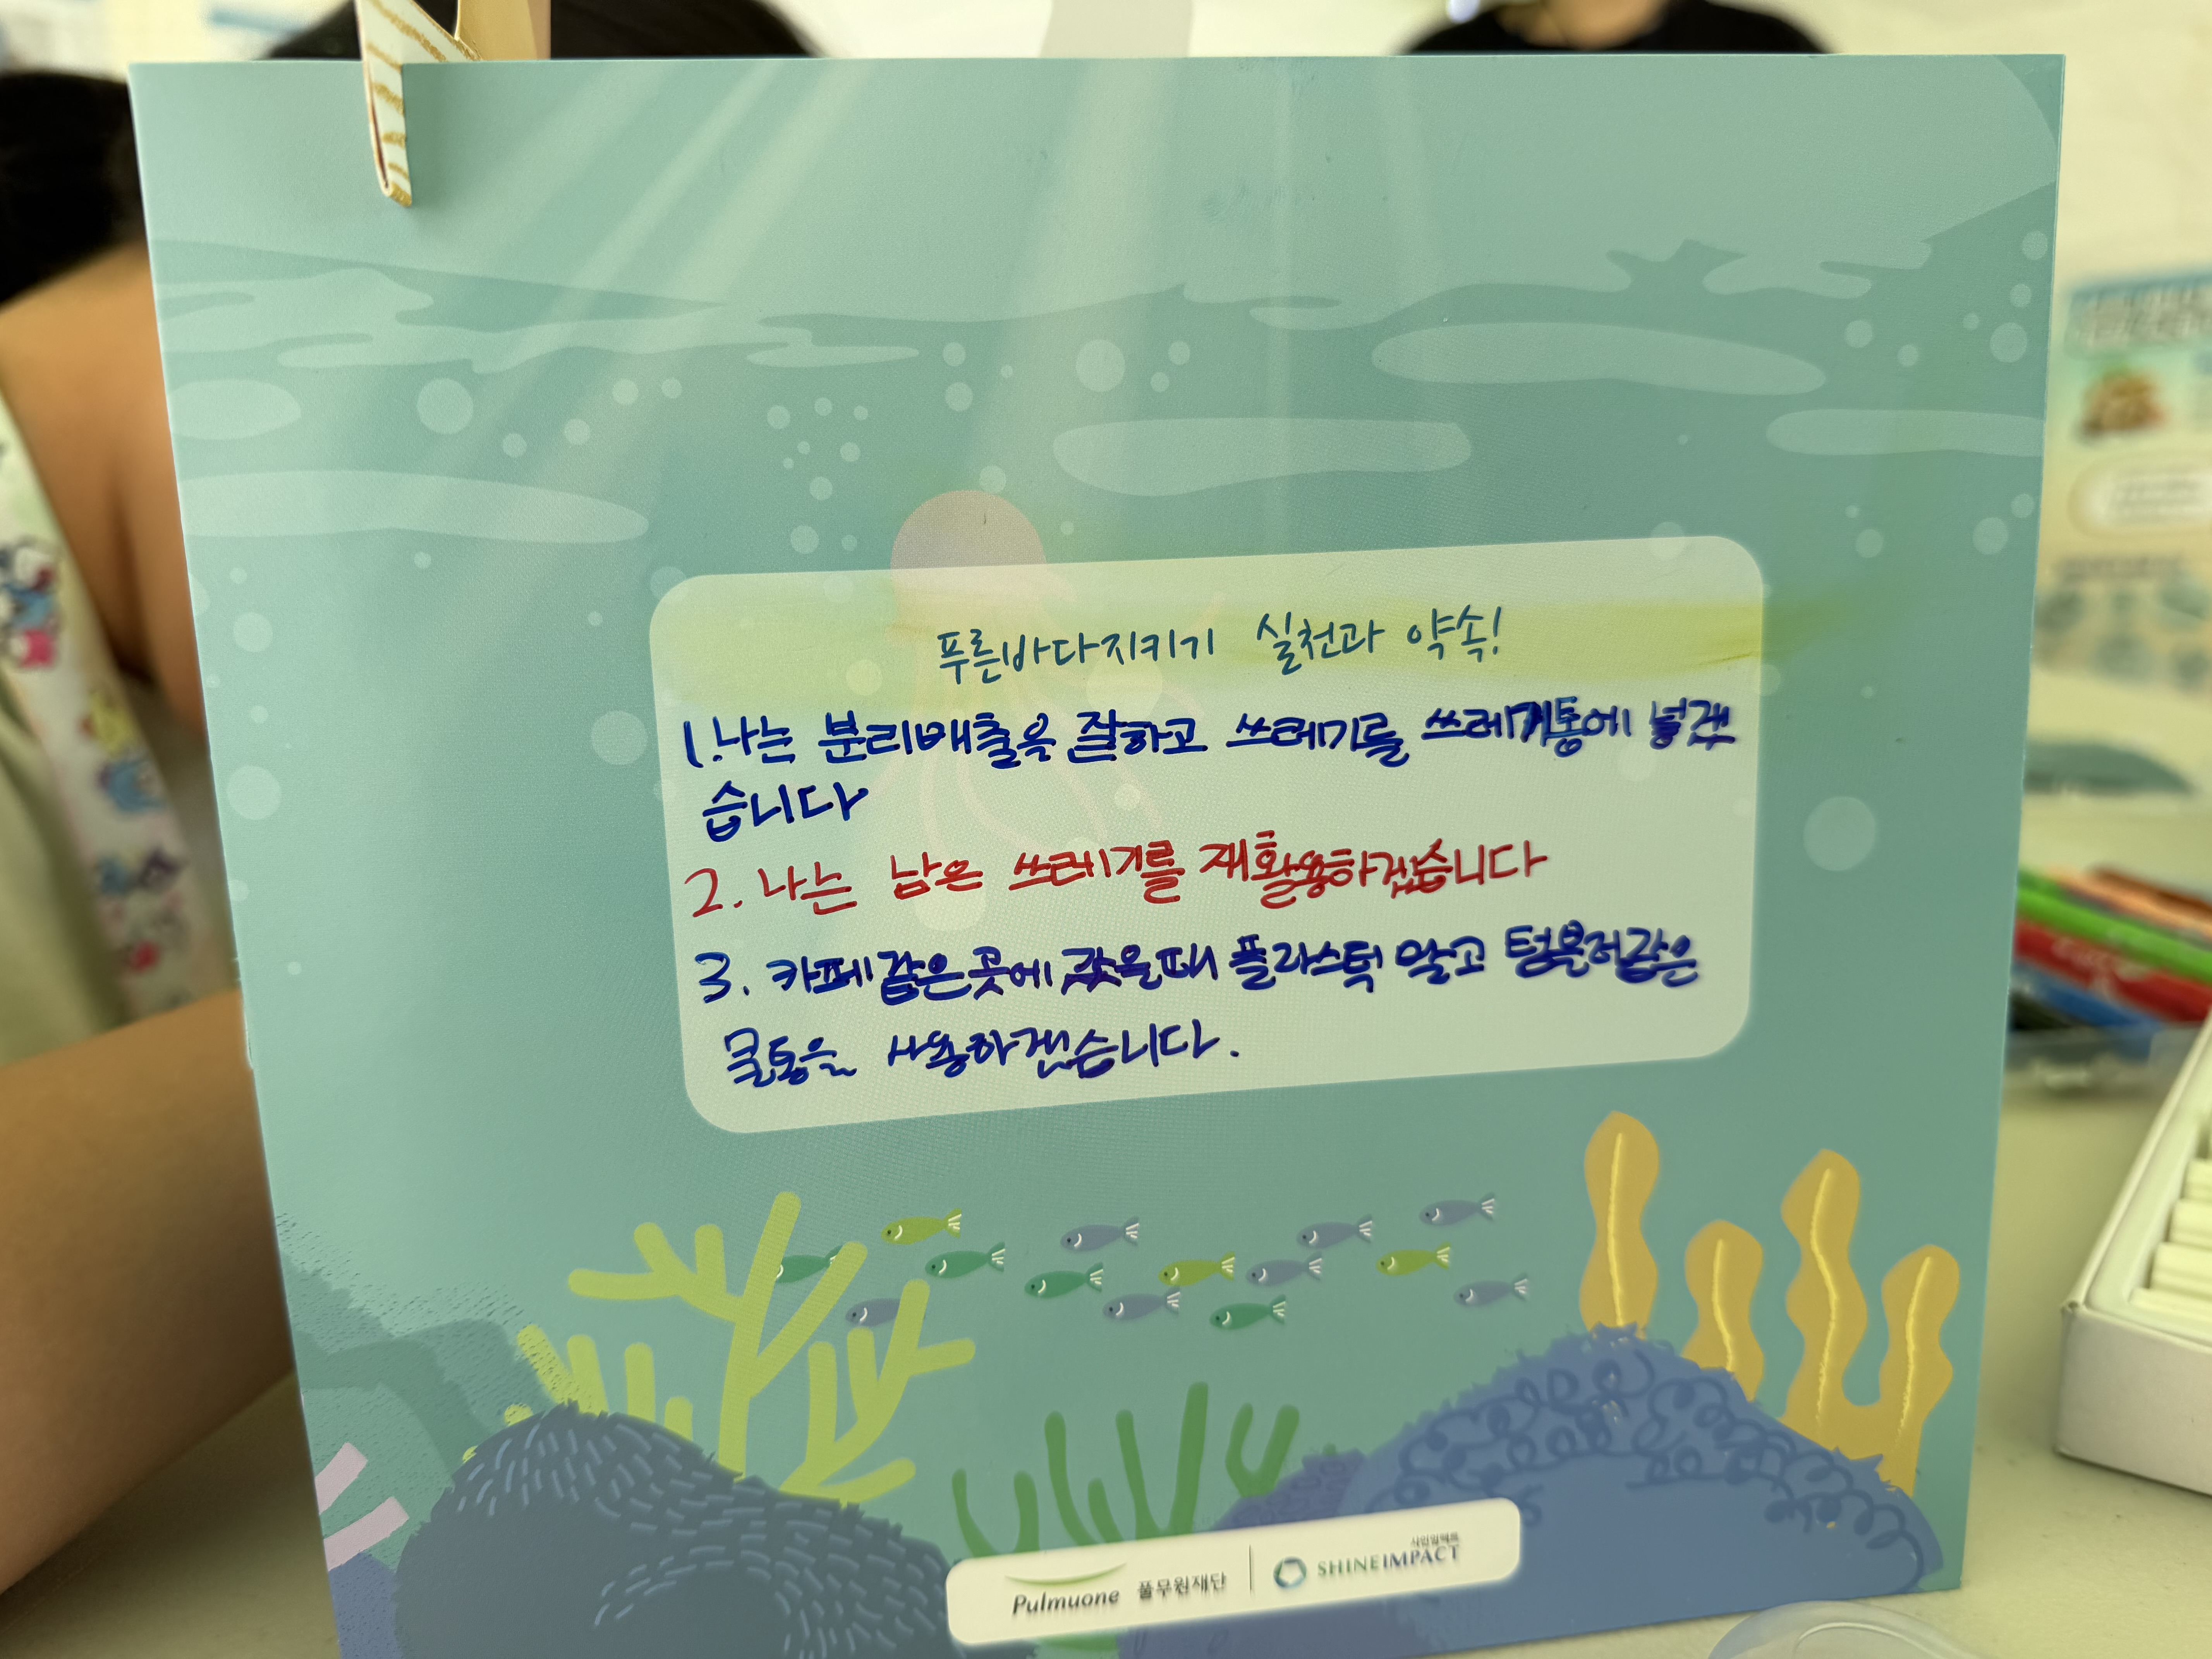 푸른바다지키기 실천과 약속!
1. 나는 분리배출을 잘하고 쓰레기를 쓰레기통에 넣겠
습니다
2. 나는 남은 쓰레기를 재활용하겠습니다
3. 카페같은곳에 갔을때 플라스틱 말고 텀블러같은
물통을 사용하겠습니다.
Pulmuone 풀무원재단
샤인임팩트
SHINEIMPACT